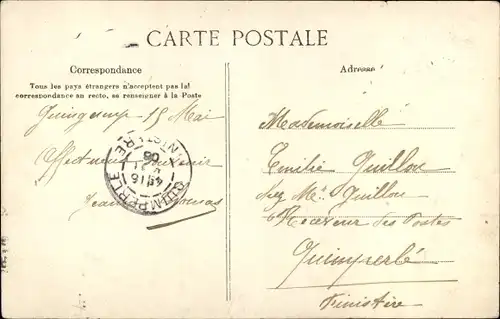 CARTE POSTALE
Correspondance
Tous les pays étrangers n'acceptent pas la
correspondance au recto, se renseigner à la Poste
Guingamp 15 Mai
Affectueux Souvenir
Jeanne
QUIMPERLE
FINISTERE
08
Adresse
Mademoiselle
Emilie Guillou
chez Mr Guillou
Receveur des Postes
Quimperlé
Finistère